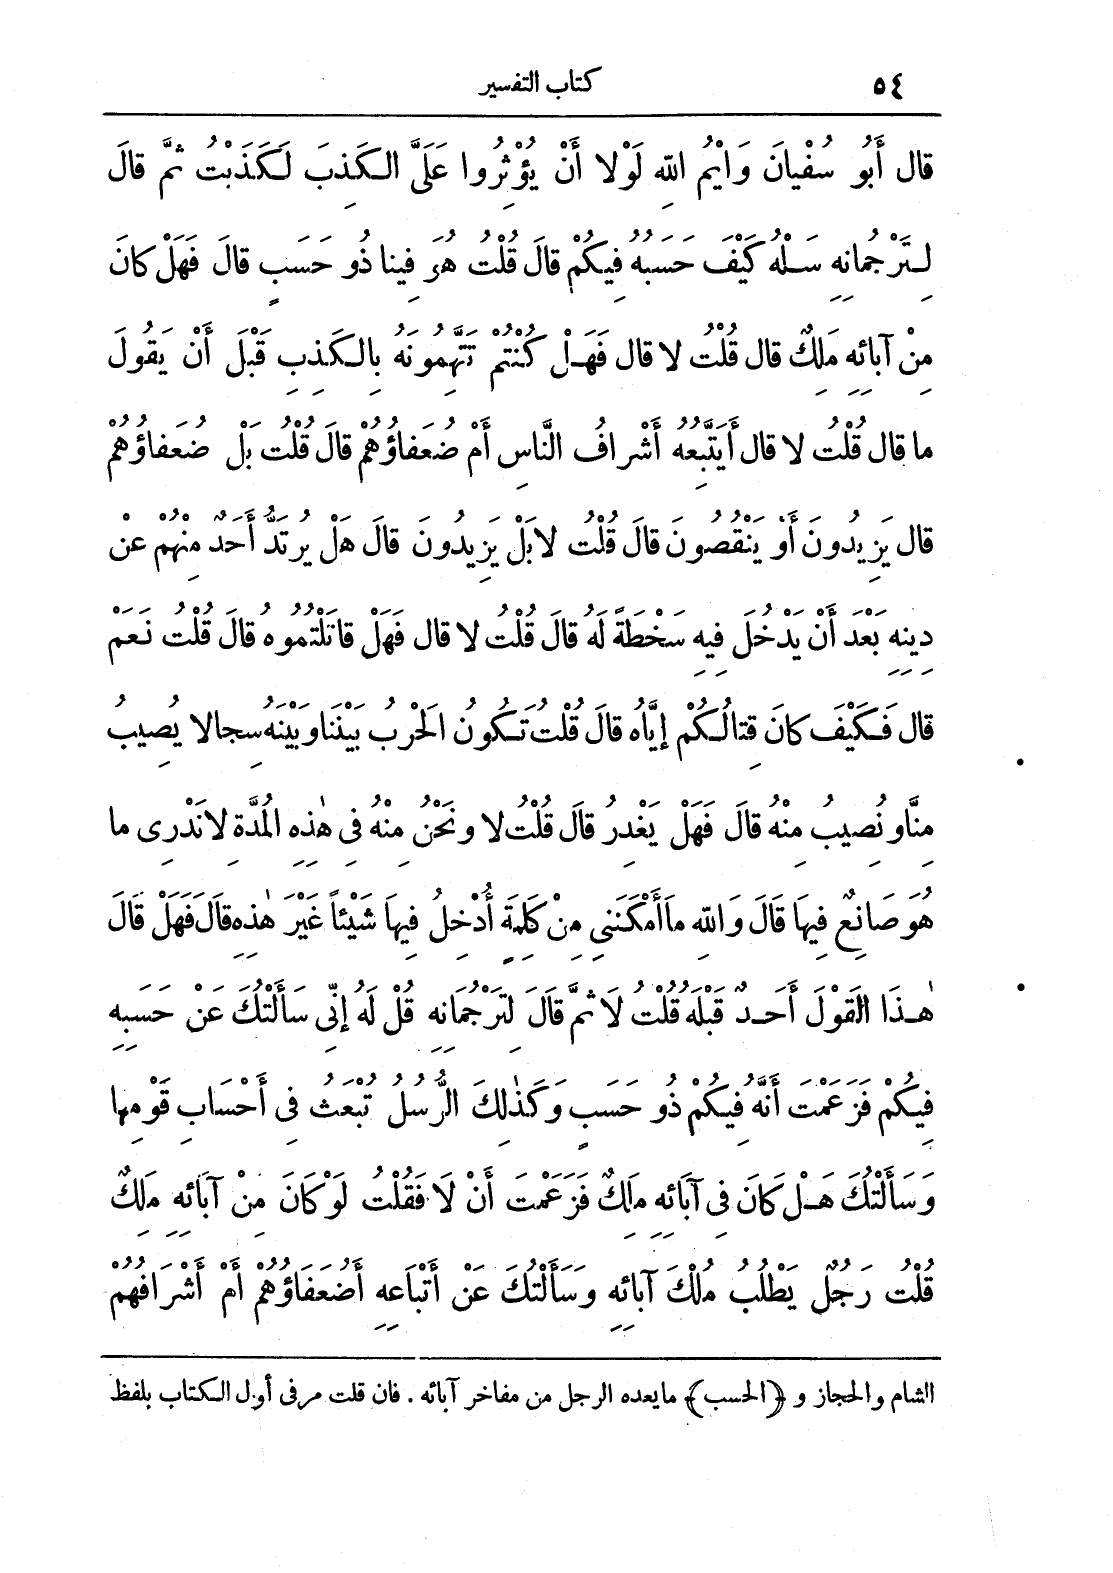 ٥٤ كتاب التفسير
قال أَبُو سُفْيانَ وَايْمُ اللهِ لَوْلا أَنْ يُؤْثِرُوا عَلَيَّ الكَذِبَ لَكَذَبْتُ ثُمَّ قالَ
لِتَرْجُمانِهِ سَلْهُ كَيْفَ حَسَبُهُ فِيكُمْ قالَ قُلْتُ هُوَ فِينا ذُو حَسَبٍ قالَ فَهَلْ كانَ
مِنْ آبائِهِ مَلِكٌ قال قُلْتُ لا قال فَهَلْ كُنْتُمْ تَتَّهِمُونَهُ بِالكَذِبِ قَبْلَ أَنْ يَقُولَ
ما قال قُلْتُ لا قال أَيَتَّبِعُهُ أَشْرافُ النَّاسِ أَمْ ضُعَفاؤُهُمْ قالَ قُلْتُ بَلْ ضُعَفاؤُهُمْ
قال يَزِيدُونَ أَوْ يَنْقُصُونَ قالَ قُلْتُ لا بَلْ يَزِيدُونَ قالَ هَلْ يَرْتَدُّ أَحَدٌ مِنْهُمْ عَنْ
دِينِهِ بَعْدَ أَنْ يَدْخُلَ فِيهِ سَخْطَةً لَهُ قالَ قُلْتُ لا قال فَهَلْ قاتَلْتُمُوهُ قالَ قُلْتُ نَعَمْ
قال فَكَيْفَ كانَ قِتالُكُمْ إِيَّاهُ قالَ قُلْتُ تَكُونُ الحَرْبُ بَيْنَنا وَبَيْنَهُ سِجالا يُصِيبُ
مِنَّا وَنُصِيبُ مِنْهُ قالَ فَهَلْ يَغْدِرُ قالَ قُلْتُ لا وَنَحْنُ مِنْهُ فِى هٰذِهِ المُدَّةِ لا نَدْرِى ما
هُوَ صَانِعٌ فِيهَا قَالَ وَاللهِ مَا أَمْكَنَنِي مِنْ كَلِمَةٍ أُدْخِلُ فِيهَا شَيْئاً غَيْرَ هٰذِهِ قَالَ فَهَلْ قَالَ
هٰذَا القَوْلَ أَحَدٌ قَبْلَهُ قُلْتُ لَا ثُمَّ قَالَ لِتَرْجُمَانِهِ قُلْ لَهُ إِنِّى سَأَلْتُكَ عَنْ حَسَبِهِ
فِيكُمْ فَزَعَمْتَ أَنَّهُ فِيكُمْ ذُو حَسَبٍ وَكَذٰلِكَ الرُّسُلُ تُبْعَثُ فِى أَحْسَابِ قَوْمِهَا
وَسَأَلْتُكَ هَلْ كَانَ فِى آبَائِهِ مَلِكٌ فَزَعَمْتَ أَنْ لَا فَقُلْتُ لَوْ كَانَ مِنْ آبَائِهِ مَلِكٌ
قُلْتُ رَجُلٌ يَطْلُبُ مُلْكَ آبائِهِ وَسَأَلْتُكَ عَنْ أَتْبَاعِهِ أَضُعَفَاؤُهُمْ أَمْ أَشْرَافُهُمْ
الشام والحجاز و ﴿الحسب﴾ ما يعده الرجل من مفاخر آبائه . فان قلت مر فى أول الكتاب بلفظ